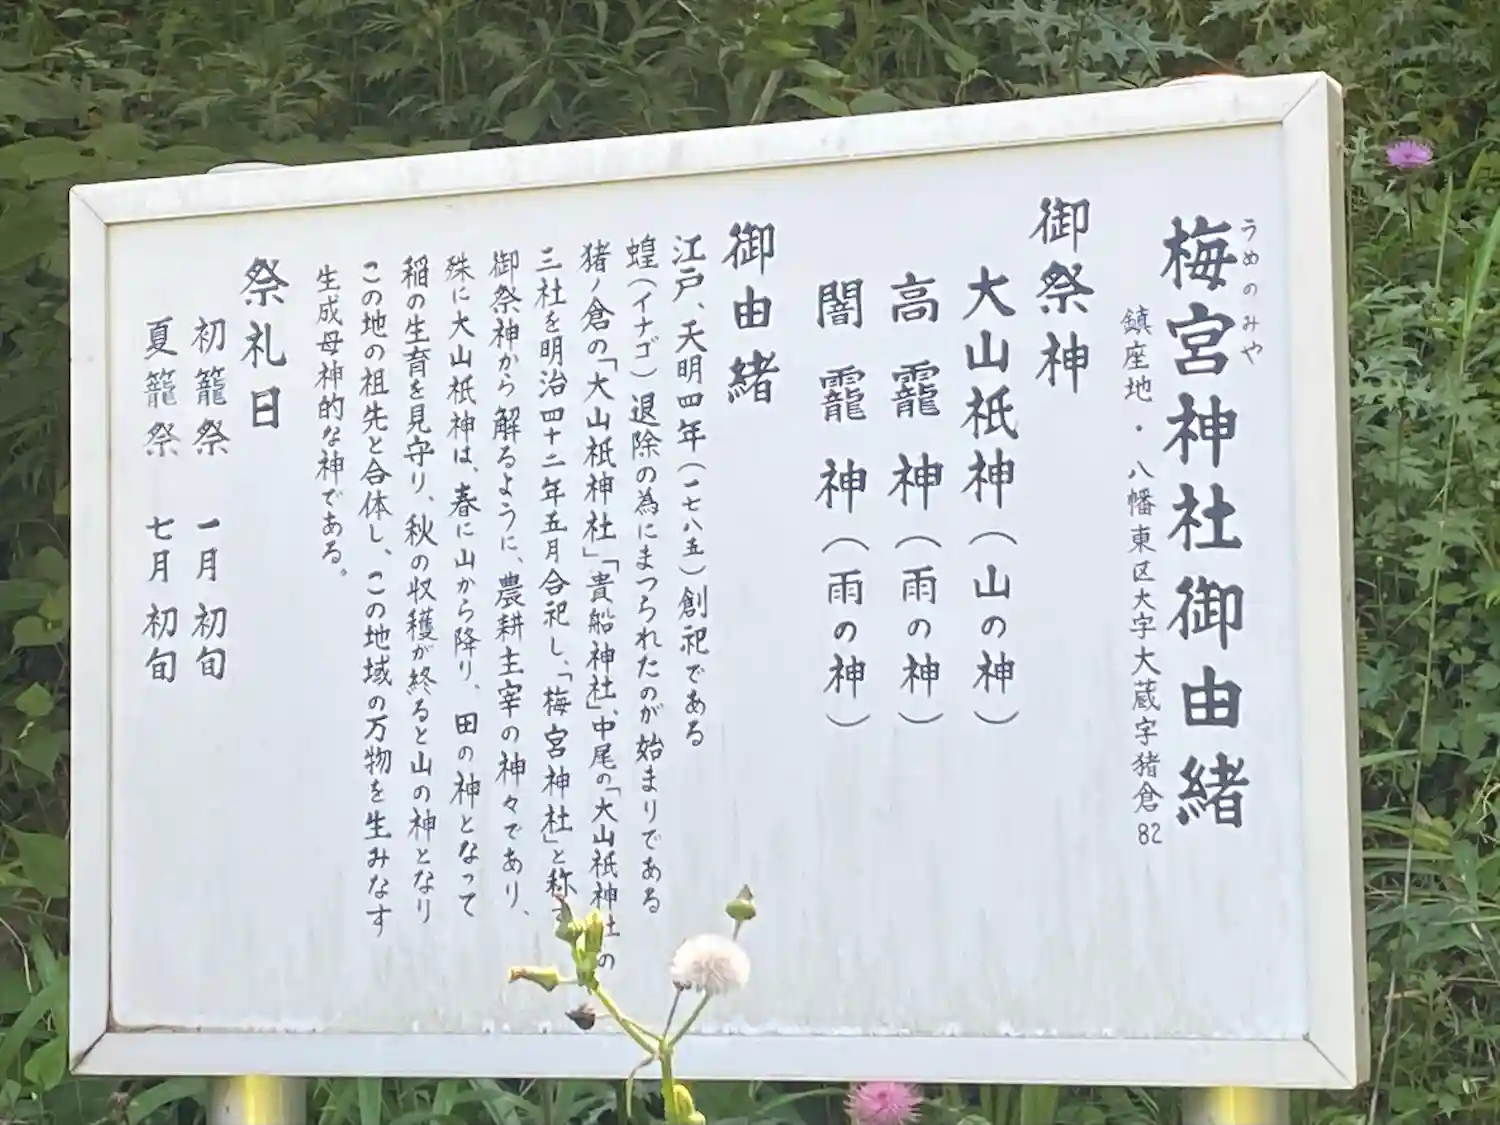 うめのみや
梅宮神社御由緒
鎮座地・八幡東区大字大蔵字猪倉82
御祭神
大山祇神（山の神）
高龗神（雨の神）
闇龗神（雨の神）
御由緒
江戸、天明四年（一七八五）創祀である
蝗（イナゴ）退除の為にまつられたのが始まりである
猪ノ倉の「大山祇神社」「貴船神社」、中尾の「大山祇神社」の
三社を明治四十二年五月合祀し、「梅宮神社」と称す
御祭神から解るように、農耕主宰の神々であり、
殊に大山祇神は、春に山から降り、田の神となって
稲の生育を見守り、秋の収穫が終ると山の神となり
この地の祖先と合体し、この地域の万物を生みなす
生成母神的な神である。
祭礼日
初籠祭 一月初旬
夏籠祭 七月初旬